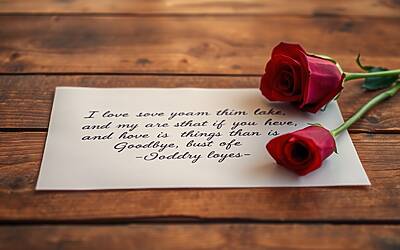 I love sove yoam thim lake,
and my are sthat if you heve,
and hove is things than is
Goodbye, bust ofe
-Joddry loyes-